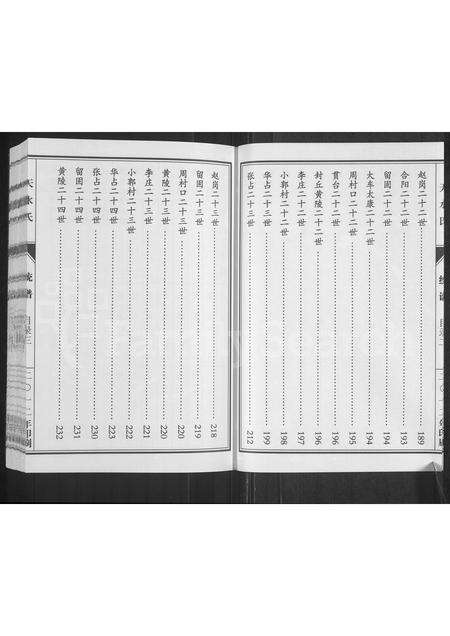 赵岗二十二世 189
合阳二十二世 193
留固二十二世 194
大车太康二十二世 194
周村口二十二世 195
贯台二十二世 196
封丘黄陵二十二世 196
李庄二十二世 197
小郭村二十二世 198
华占二十三世 199
张占二十三世 212
赵岗二十三世 218
留固二十三世 219
周村口二十三世 220
黄陵二十三世 220
李庄二十三世 221
小郭村二十三世 222
华占二十四世 223
张占二十四世 230
留固二十四世 231
黄陵二十四世 232
天水氏
统谱
目录三
二〇一二年印刷